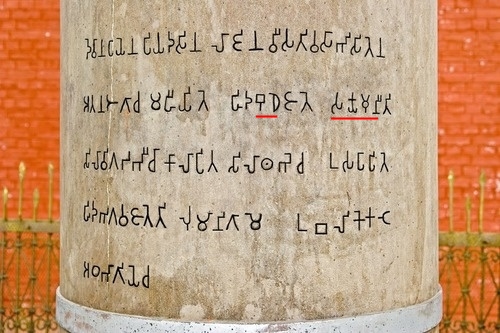 𑀤𑁂𑀯𑀸𑀦𑀧𑀺𑀬𑁂𑀦 𑀧𑀺𑀬𑀤𑀲𑀺𑀦 𑀮𑀸𑀚𑀺𑀦𑀯𑀻𑀲𑀢𑀺𑀯𑀲𑀸𑀪𑀺𑀲𑀺𑀢𑁂𑀦
𑀅𑀢𑀦𑀆𑀕𑀸𑀘 𑀫𑀳𑀻𑀬𑀺𑀢𑁂 𑀳𑀺𑀤𑀩𑀼𑀥𑁂𑀚𑀸𑀢𑁂 𑀲𑀓𑁆𑀬𑀫𑀼𑀦𑀻𑀢𑀺
𑀲𑀺𑀮𑀸𑀯𑀺𑀕𑀟𑀪𑀻𑀘𑀸𑀓𑀸𑀮𑀸𑀧𑀺𑀢 𑀲𑀺𑀮𑀸𑀣𑀪𑁂𑀘 𑀉𑀲𑀧𑀸𑀧𑀺𑀢𑁂
𑀳𑀺𑀤𑀪𑀕𑀯𑀁𑀚𑀸𑀢𑁂𑀢𑀺 𑀮𑀼𑀁𑀫𑀺𑀦𑀺𑀕𑀸𑀫𑁂 𑀉𑀩𑀮𑀺𑀓𑁂𑀓𑀝𑁂
𑀅𑀞𑀪𑀸𑀕𑀺𑀬𑁂𑀘